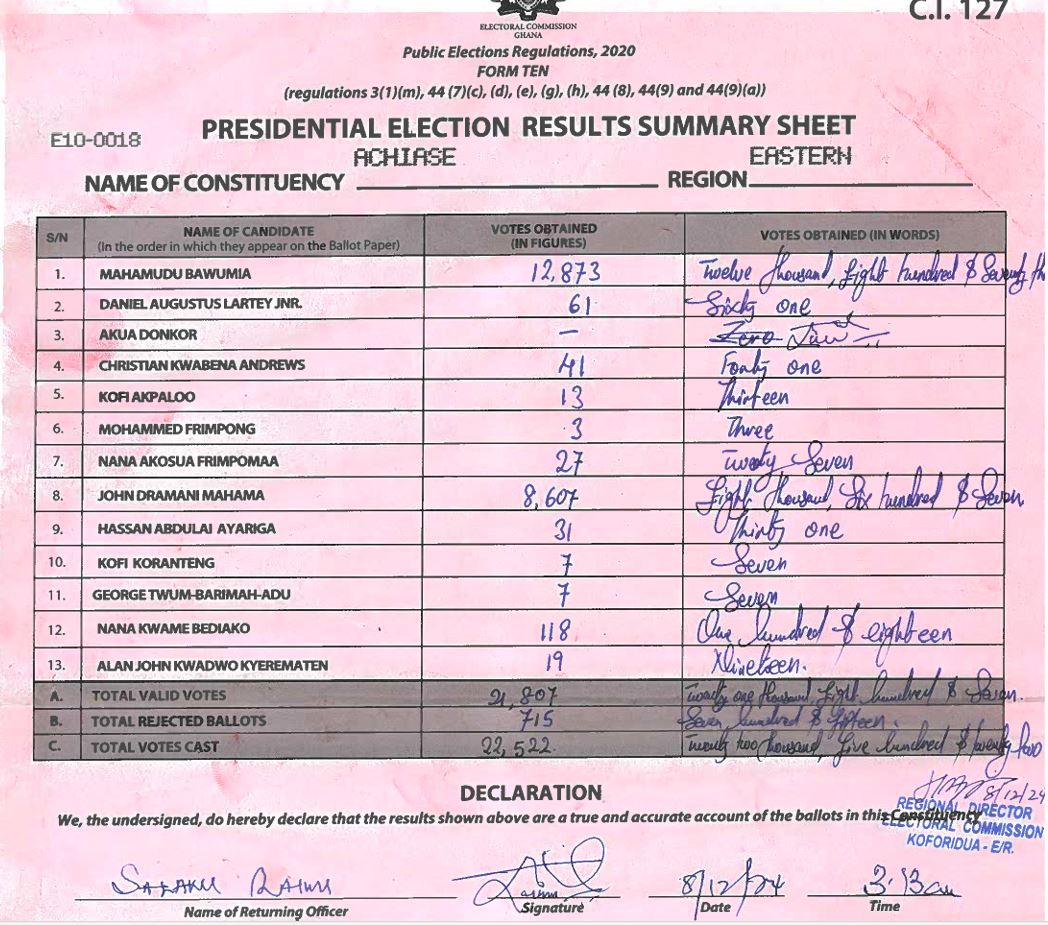 C.I. 127
ELECTORAL COMMISSION
GHANA
Public Elections Regulations, 2020
FORM TEN
(regulations 3(1)(m), 44 (7)(c), (d), (e), (g), (h), 44 (8), 44(9) and 44(9)(a))
E10-0018
PRESIDENTIAL ELECTION RESULTS SUMMARY SHEET
NAME OF CONSTITUENCY ACHIASE REGION EASTERN
S/N NAME OF CANDIDATE (In the order in which they appear on the Ballot Paper) VOTES OBTAINED (IN FIGURES) VOTES OBTAINED (IN WORDS)
1. MAHAMUDU BAWUMIA 12,873 Twelve thousand, Eight hundred & Seventy th
2. DANIEL AUGUSTUS LARTEY JNR. 61 Sixty one
3. AKUA DONKOR — Zero
4. CHRISTIAN KWABENA ANDREWS 41 Fourty one
5. KOFI AKPALOO 13 Thirteen
6. MOHAMMED FRIMPONG 3 Three
7. NANA AKOSUA FRIMPOMAA 27 Twenty Seven
8. JOHN DRAMANI MAHAMA 8,607 Eight thousand, Six hundred & Seven
9. HASSAN ABDULAI AYARIGA 31 Thirty one
10. KOFI KORANTENG 7 Seven
11. GEORGE TWUM-BARIMAH-ADU 7 Seven
12. NANA KWAME BEDIAKO 118 One hundred & eighteen
13. ALAN JOHN KWADWO KYEREMATEN 19 Nineteen.
A. TOTAL VALID VOTES 21,807 Twenty one thousand, Eight hundred & Seven.
B. TOTAL REJECTED BALLOTS 715 Seven hundred & fifteen.
C. TOTAL VOTES CAST 22,522. Twenty two thousand, five hundred & twenty two
DECLARATION
8/12/24
We, the undersigned, do hereby declare that the results shown above are a true and accurate account of the ballots in this Constituency
REGIONAL DIRECTOR
ELECTORAL COMMISSION
KOFORIDUA - E/R.
8/12/24 3:13am
Name of Returning Officer Signature Date Time